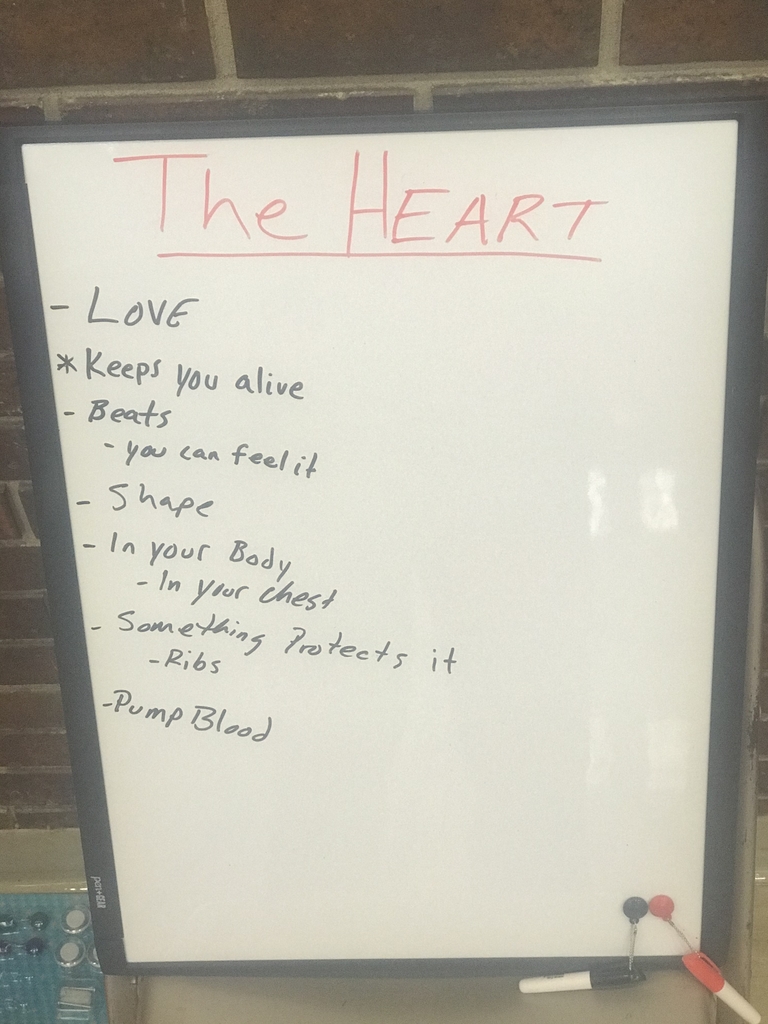 The HEART
- LOVE
* Keeps you alive
- Beats
- you can feel it
- Shape
- In your Body
- In your chest
- Something Protects it
- Ribs
- Pump Blood